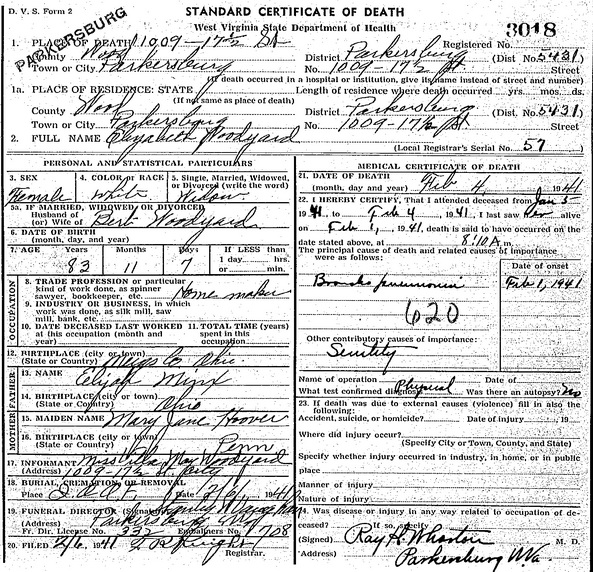 D. V. S. Form 2
PARKERSBURG
STANDARD CERTIFICATE OF DEATH
West Virginia State Department of Health
3018
1. PLACE OF DEATH 1009-17½ St
Registered No.
County Wood
District Parkersburg (Dist No. 5431)
Town or City Parkersburg
No. 1009-17½ St Street
(If death occurred in a hospital or institution, give its name instead of street and number)
1a. PLACE OF RESIDENCE: STATE
Length of residence where death occurred yrs. mos. ds.
(If not same as place of death)
County Wood
District Parkersburg (Dist. No. 5431)
Town or City Parkersburg
No. 1009-17½ St Street
2. FULL NAME Elizabeth Woodyard
(Local Registrar's Serial No. 57
PERSONAL AND STATISTICAL PARTICULARS
3. SEX Female
4. COLOR or RACE White
5. Single, Married, Widowed, or Divorced (write the word) Widow
5a. IF MARRIED, WIDOWED, OR DIVORCED
Husband of (or) Wife of Bert Woodyard
6. DATE OF BIRTH
(month, day, and year)
7. AGE Years Months Days If LESS than
1 day hrs.
or min.
83 11 7
OCCUPATION
8. TRADE PROFESSION or particular kind of work done, as spinner sawyer, bookkeeper, etc. Home maker
9. INDUSTRY OR BUSINESS, in which work was done, as silk mill, saw mill, bank, etc.
10. DATE DECEASED LAST WORKED at this occupation (month and year)
11. TOTAL TIME (years) spent in this occupation
12. BIRTHPLACE (city or town)
(State or Country) Meigs Co Ohio.
FATHER
13. NAME Elijah Minx
14. BIRTHPLACE (city or town)
(State or Country) Ohio
MOTHER
15. MAIDEN NAME Mary Jane Hoover
16. BIRTHPLACE (city or town)
(State or Country) Penn
17. INFORMANT Miss May Woodyard
(Address) 1009-17½ St City
18. BURIAL, CREMATION, OR REMOVAL
Place I.O.O.F. Date 2/6, 1941
19. FUNERAL DIRECTOR (Signature)
(Address) Parkersburg W Va
Fr. Dir. License No. 332 Embalmers No. 708
20. FILED 2/6, 1941
Registrar.
MEDICAL CERTIFICATE OF DEATH
21. DATE OF DEATH
(month, day, and year) Feb 4, 1941
22. I HEREBY CERTIFY, That I attended deceased from Jan 5
1941, to Feb 4 1941, I last saw her alive
on Feb 1, 1941, death is said to have occurred on the
date stated above, at 8:10 A m.
The principal cause of death and related causes of importance were as follows:
Date of onset
Broncho pneumonia
Feb 1, 1941
620
Other contributory causes of importance:
Senility
Name of operation Date of
What test confirmed diagnosis Physical Was there an autopsy? No
23. If death was due to external causes (violence) fill in also the following:
Accident, suicide, or homicide? Date of injury , 19
Where did injury occur?
(Specify City or Town, County, and State)
Specify whether injury occurred in industry, in home, or in public place
Manner of injury
Nature of injury
24. Was disease or injury in any way related to occupation of deceased? If so, specify
(Signed) Ray H. Wharton M. D.
(Address) Parkersburg W. Va.